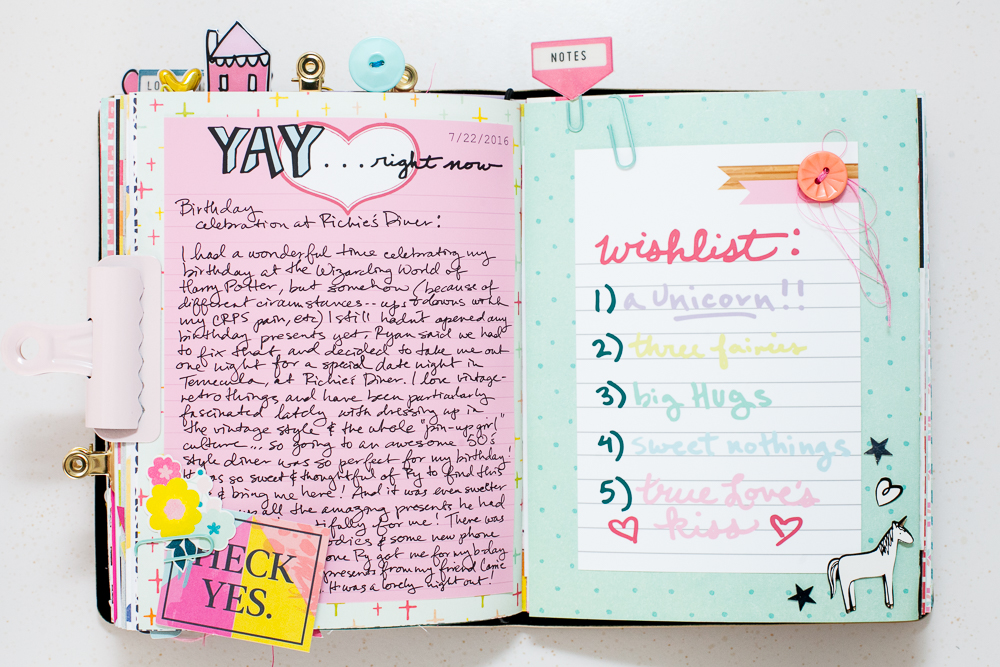 LO
NOTES
YAY
7/22/2016
...right now
Birthday
celebration at Richie's Diner:
I had a wonderful time celebrating my
birthday at the Wizarding World of
Harry Potter, but somehow (because of
different circumstances -- ups & downs with
my CRPS pain, etc) I still hadn't opened any
birthday presents yet. Ryan said we had
to fix that, and decided to take me out
one night for a special date night in
Temecula, at Richie's Diner. I love vintage-
retro things and have been particularly
fascinated lately with dressing up in
the vintage style & the whole "pin-up girl"
culture... so going to an awesome 50's
style diner was so perfect for my birthday!
It was so sweet & thoughtful of Ry to find this
& bring me here! And it was even sweeter
all the amazing presents he had
for me! There was
& some new phone
Ry got me for my bday
presents from my friend Came
It was a lovely night out!
HECK
YES.
wishlist:
1) a Unicorn!!
2) three fairies
3) big Hugs
4) sweet nothings
5) true Love's
kiss